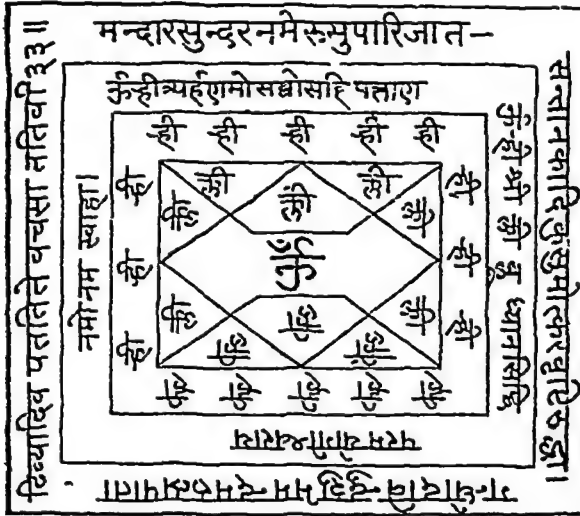 मन्दारसुन्दरनमेरुसुपारिजात–
सन्तानकादिकुसुमोत्करवृष्टिरुद्धा।
गन्धोदबिन्दुशुभमन्दमरुत्प्रपाता
दिव्यादिव पततिते वचसा ततिर्वा ३३॥
ॐह्रीअर्हंणमोसव्वोसहि पत्ताण
ॐ ह्री श्री क्ली ब्लू ध्यानसिद्धि
परमयोगीश्वराय
नमोनम स्वाहा।
ह्री ह्री ह्री ह्री ह्री
ह्री ह्री ह्री
ह्री ह्री ह्री ह्री ह्री
ह्री ह्री ह्री
क्ली क्ली क्ली
क्ली क्ली
क्ली क्ली क्ली
क्ली क्ली
ॐ